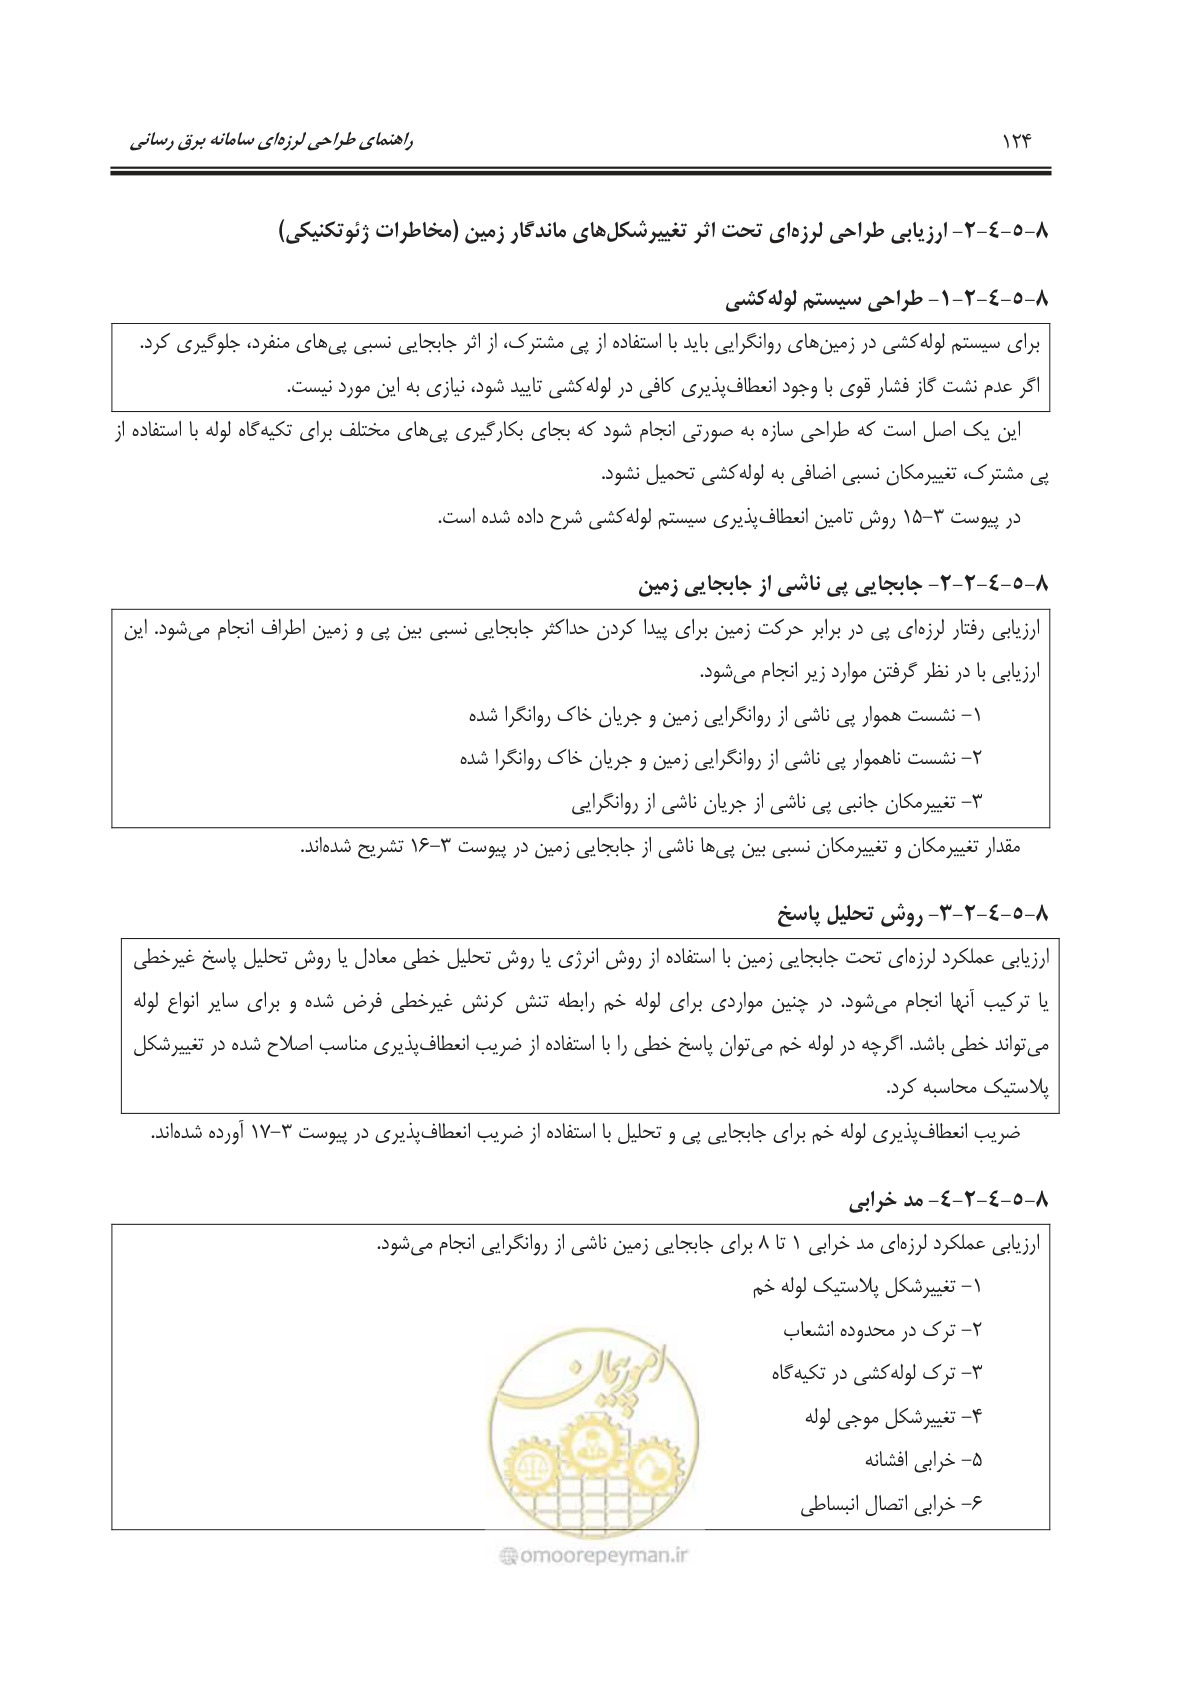 ۱۲۴
راهنمای طراحی لرزه‌ای سامانه برق رسانی
۸-۵-۴-۲- ارزیابی طراحی لرزه‌ای تحت اثر تغییرشکل‌های ماندگار زمین (مخاطرات ژئوتکنیکی)
۸-۵-۴-۲-۱- طراحی سیستم لوله‌کشی
برای سیستم لوله‌کشی در زمین‌های روانگرایی باید با استفاده از پی مشترک، از اثر جابجایی نسبی پی‌های منفرد، جلوگیری کرد.
اگر عدم نشت گاز فشار قوی با وجود انعطاف‌پذیری کافی در لوله‌کشی تایید شود، نیازی به این مورد نیست.
این یک اصل است که طراحی سازه به صورتی انجام شود که بجای بکارگیری پی‌های مختلف برای تکیه‌گاه لوله با استفاده از
پی مشترک، تغییرمکان نسبی اضافی به لوله‌کشی تحمیل نشود.
در پیوست ۳-۱۵ روش تامین انعطاف‌پذیری سیستم لوله‌کشی شرح داده شده است.
۸-۵-۴-۲-۲- جابجایی پی ناشی از جابجایی زمین
ارزیابی رفتار لرزه‌ای پی در برابر حرکت زمین برای پیدا کردن حداکثر جابجایی نسبی بین پی و زمین اطراف انجام می‌شود. این
ارزیابی با در نظر گرفتن موارد زیر انجام می‌شود.
۱- نشست هموار پی ناشی از روانگرایی زمین و جریان خاک روانگرا شده
۲- نشست ناهموار پی ناشی از روانگرایی زمین و جریان خاک روانگرا شده
۳- تغییرمکان جانبی پی ناشی از جریان ناشی از روانگرایی
مقدار تغییرمکان و تغییرمکان نسبی بین پی‌ها ناشی از جابجایی زمین در پیوست ۳-۱۶ تشریح شده‌اند.
۸-۵-۴-۲-۳- روش تحلیل پاسخ
ارزیابی عملکرد لرزه‌ای تحت جابجایی زمین با استفاده از روش انرژی یا روش تحلیل خطی معادل یا روش تحلیل پاسخ غیرخطی
یا ترکیب آنها انجام می‌شود. در چنین مواردی برای لوله خم رابطه تنش کرنش غیرخطی فرض شده و برای سایر انواع لوله
می‌تواند خطی باشد. اگرچه در لوله خم می‌توان پاسخ خطی را با استفاده از ضریب انعطاف‌پذیری مناسب اصلاح شده در تغییرشکل
پلاستیک محاسبه کرد.
ضریب انعطاف‌پذیری لوله خم برای جابجایی پی و تحلیل با استفاده از ضریب انعطاف‌پذیری در پیوست ۳-۱۷ آورده شده‌اند.
۸-۵-۴-۲-۴- مد خرابی
ارزیابی عملکرد لرزه‌ای مد خرابی ۱ تا ۸ برای جابجایی زمین ناشی از روانگرایی انجام می‌شود.
۱- تغییرشکل پلاستیک لوله خم
۲- ترک در محدوده انشعاب
۳- ترک لوله‌کشی در تکیه‌گاه
۴- تغییرشکل موجی لوله
۵- خرابی افشانه
۶- خرابی اتصال انبساطی
امور پیمان
@omoorepeyman.ir